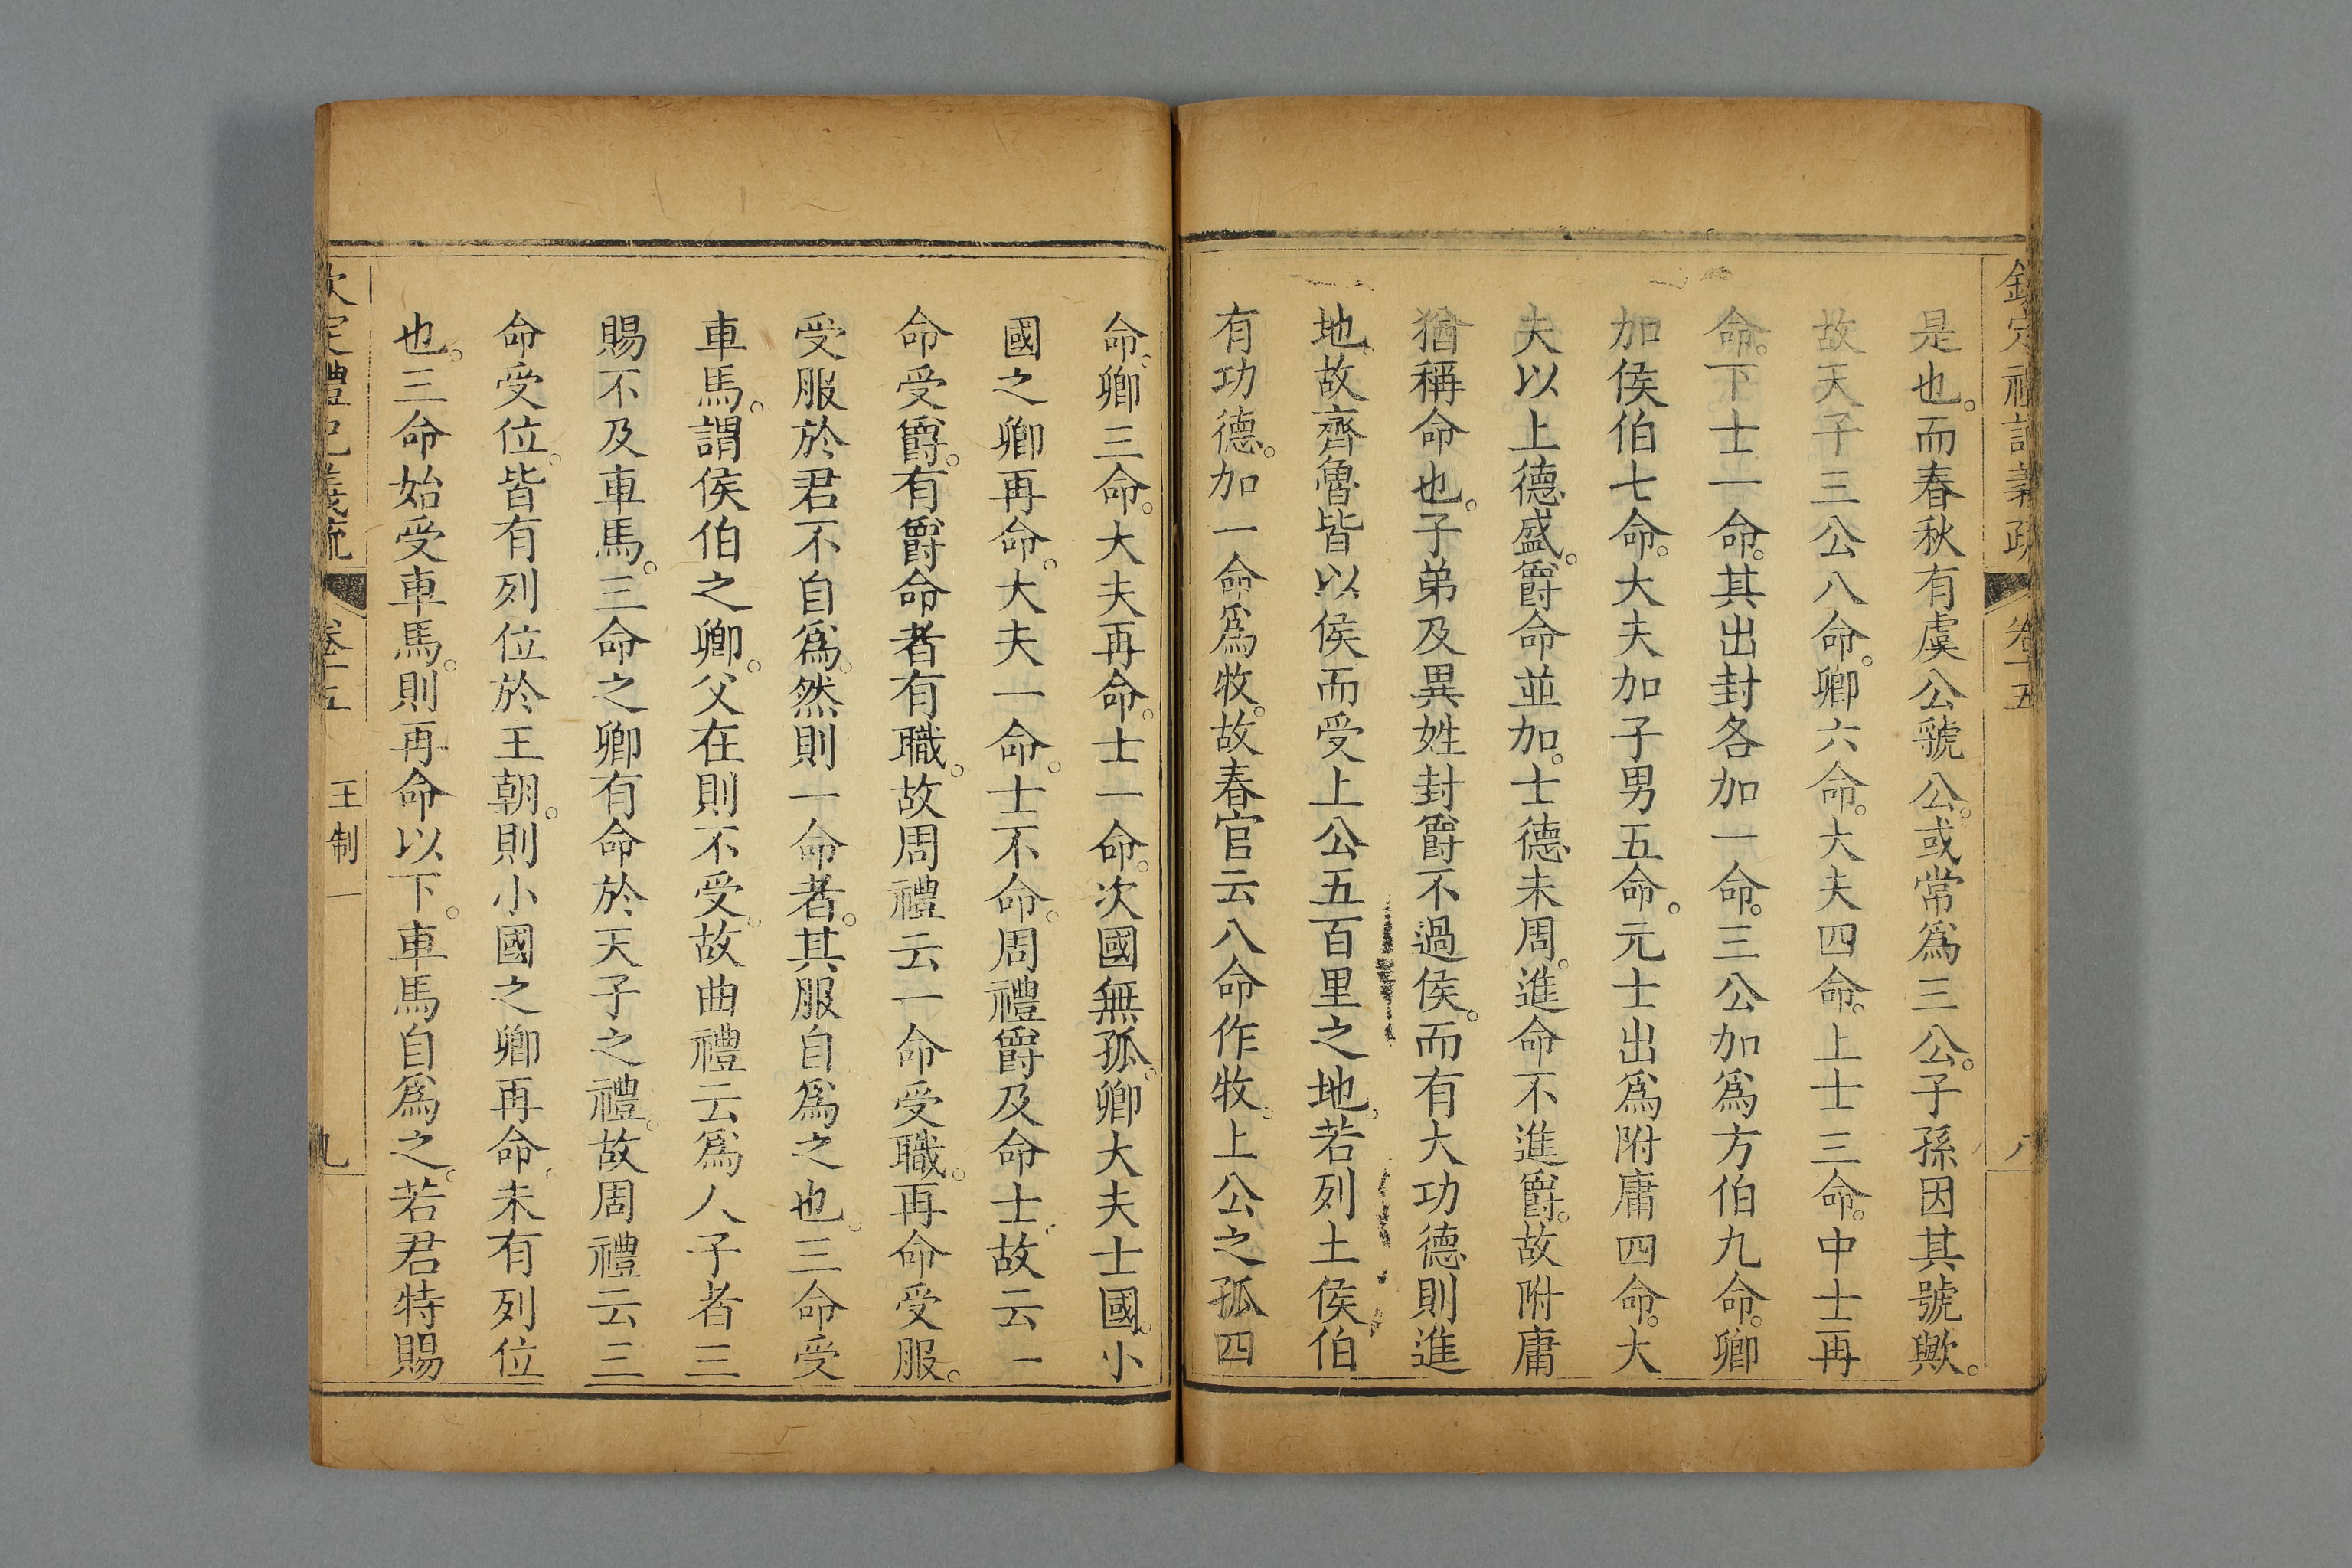 欽定禮記義疏 卷十五 八
是也。而春秋有虞公虢公。或常爲三公。子孫因其號歟。
故天子三公八命。卿六命。大夫四命。上士三命。中士再
命。下士一命。其出封各加一命。三公加爲方伯九命。卿
加侯伯七命。大夫加子男五命。元士出爲附庸四命。大
夫以上德盛。爵命並加。士德未周。進命不進爵。故附庸
猶稱命也。子弟及異姓封爵不過侯。而有大功德則進
地。故齊魯皆以侯而受上公五百里之地。若列土侯伯
有功德。加一命爲牧。故春官云八命作牧。上公之孤四
命。卿三命。大夫再命。士一命。次國無孤。卿大夫士國。小
國之卿再命。大夫一命。士不命。周禮爵及命士。故云一
命受爵。有爵命者有職。故周禮云一命受職。再命受服。
受服於君不自爲。然則一命者。其服自爲之也。三命受
車馬。謂侯伯之卿。父在則不受。故曲禮云爲人子者三
賜不及車馬。三命之卿有命於天子之禮。故周禮云三
命受位。皆有列位於王朝。則小國之卿再命。未有列位
也。三命始受車馬。則再命以下。車馬自爲之。若君特賜
欽定禮記義疏 卷十五 王制一 九